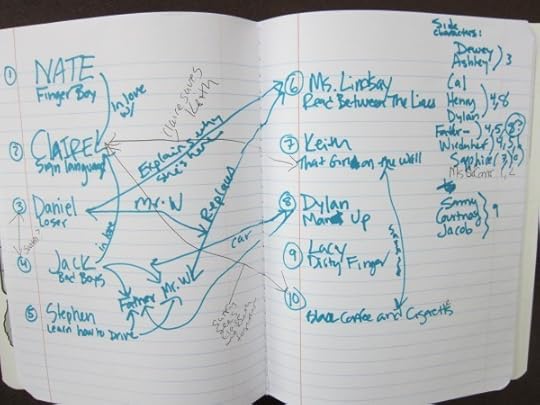 1 NATE
Finger Boy
In love w/
2 CLAIRE
Sign language
3 Daniel
Loser
4 Jack
Bad Boys
5 Stephen
Learn how to Drive
in love
Father
Mr. W
Mr. W
Explains why
she's here
Replaces
car
Claire saves
Keith
6 Ms. Lindsay
Read Between The Lines
7 Keith
That Girl on the Wall
8 Dylan
Man Up
9 Lacy
Dirty Finger
10
Black Coffee and Cigarettes
Side
characters:
Dewey
Ashley 3
Cal
Henry 4,8
Dylan
Father- 4,5
Sapphire
Sammy
Courtney 9
Jacob